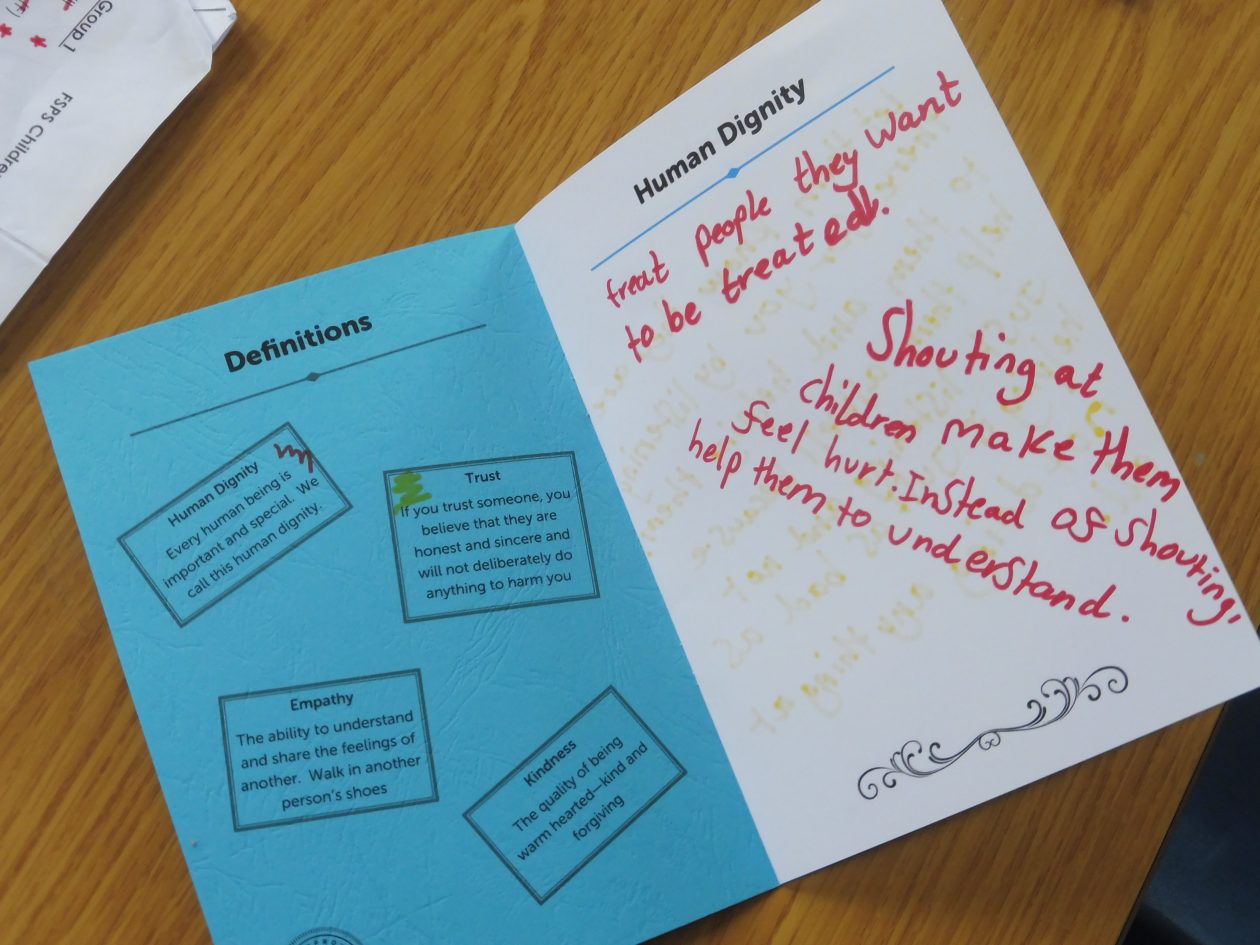 Group 1
FSPS Children
Definitions
Human Dignity
Every human being is
important and special. We
call this human dignity.
Trust
If you trust someone, you
believe that they are
honest and sincere and
will not deliberately do
anything to harm you
Empathy
The ability to understand
and share the feelings of
another. Walk in another
person's shoes
Kindness
The quality of being
warm hearted—kind and
forgiving
Human Dignity
treat people they want
to be treated.
Shouting at
children make them
feel hurt. Instead of shouting,
help them to understand.